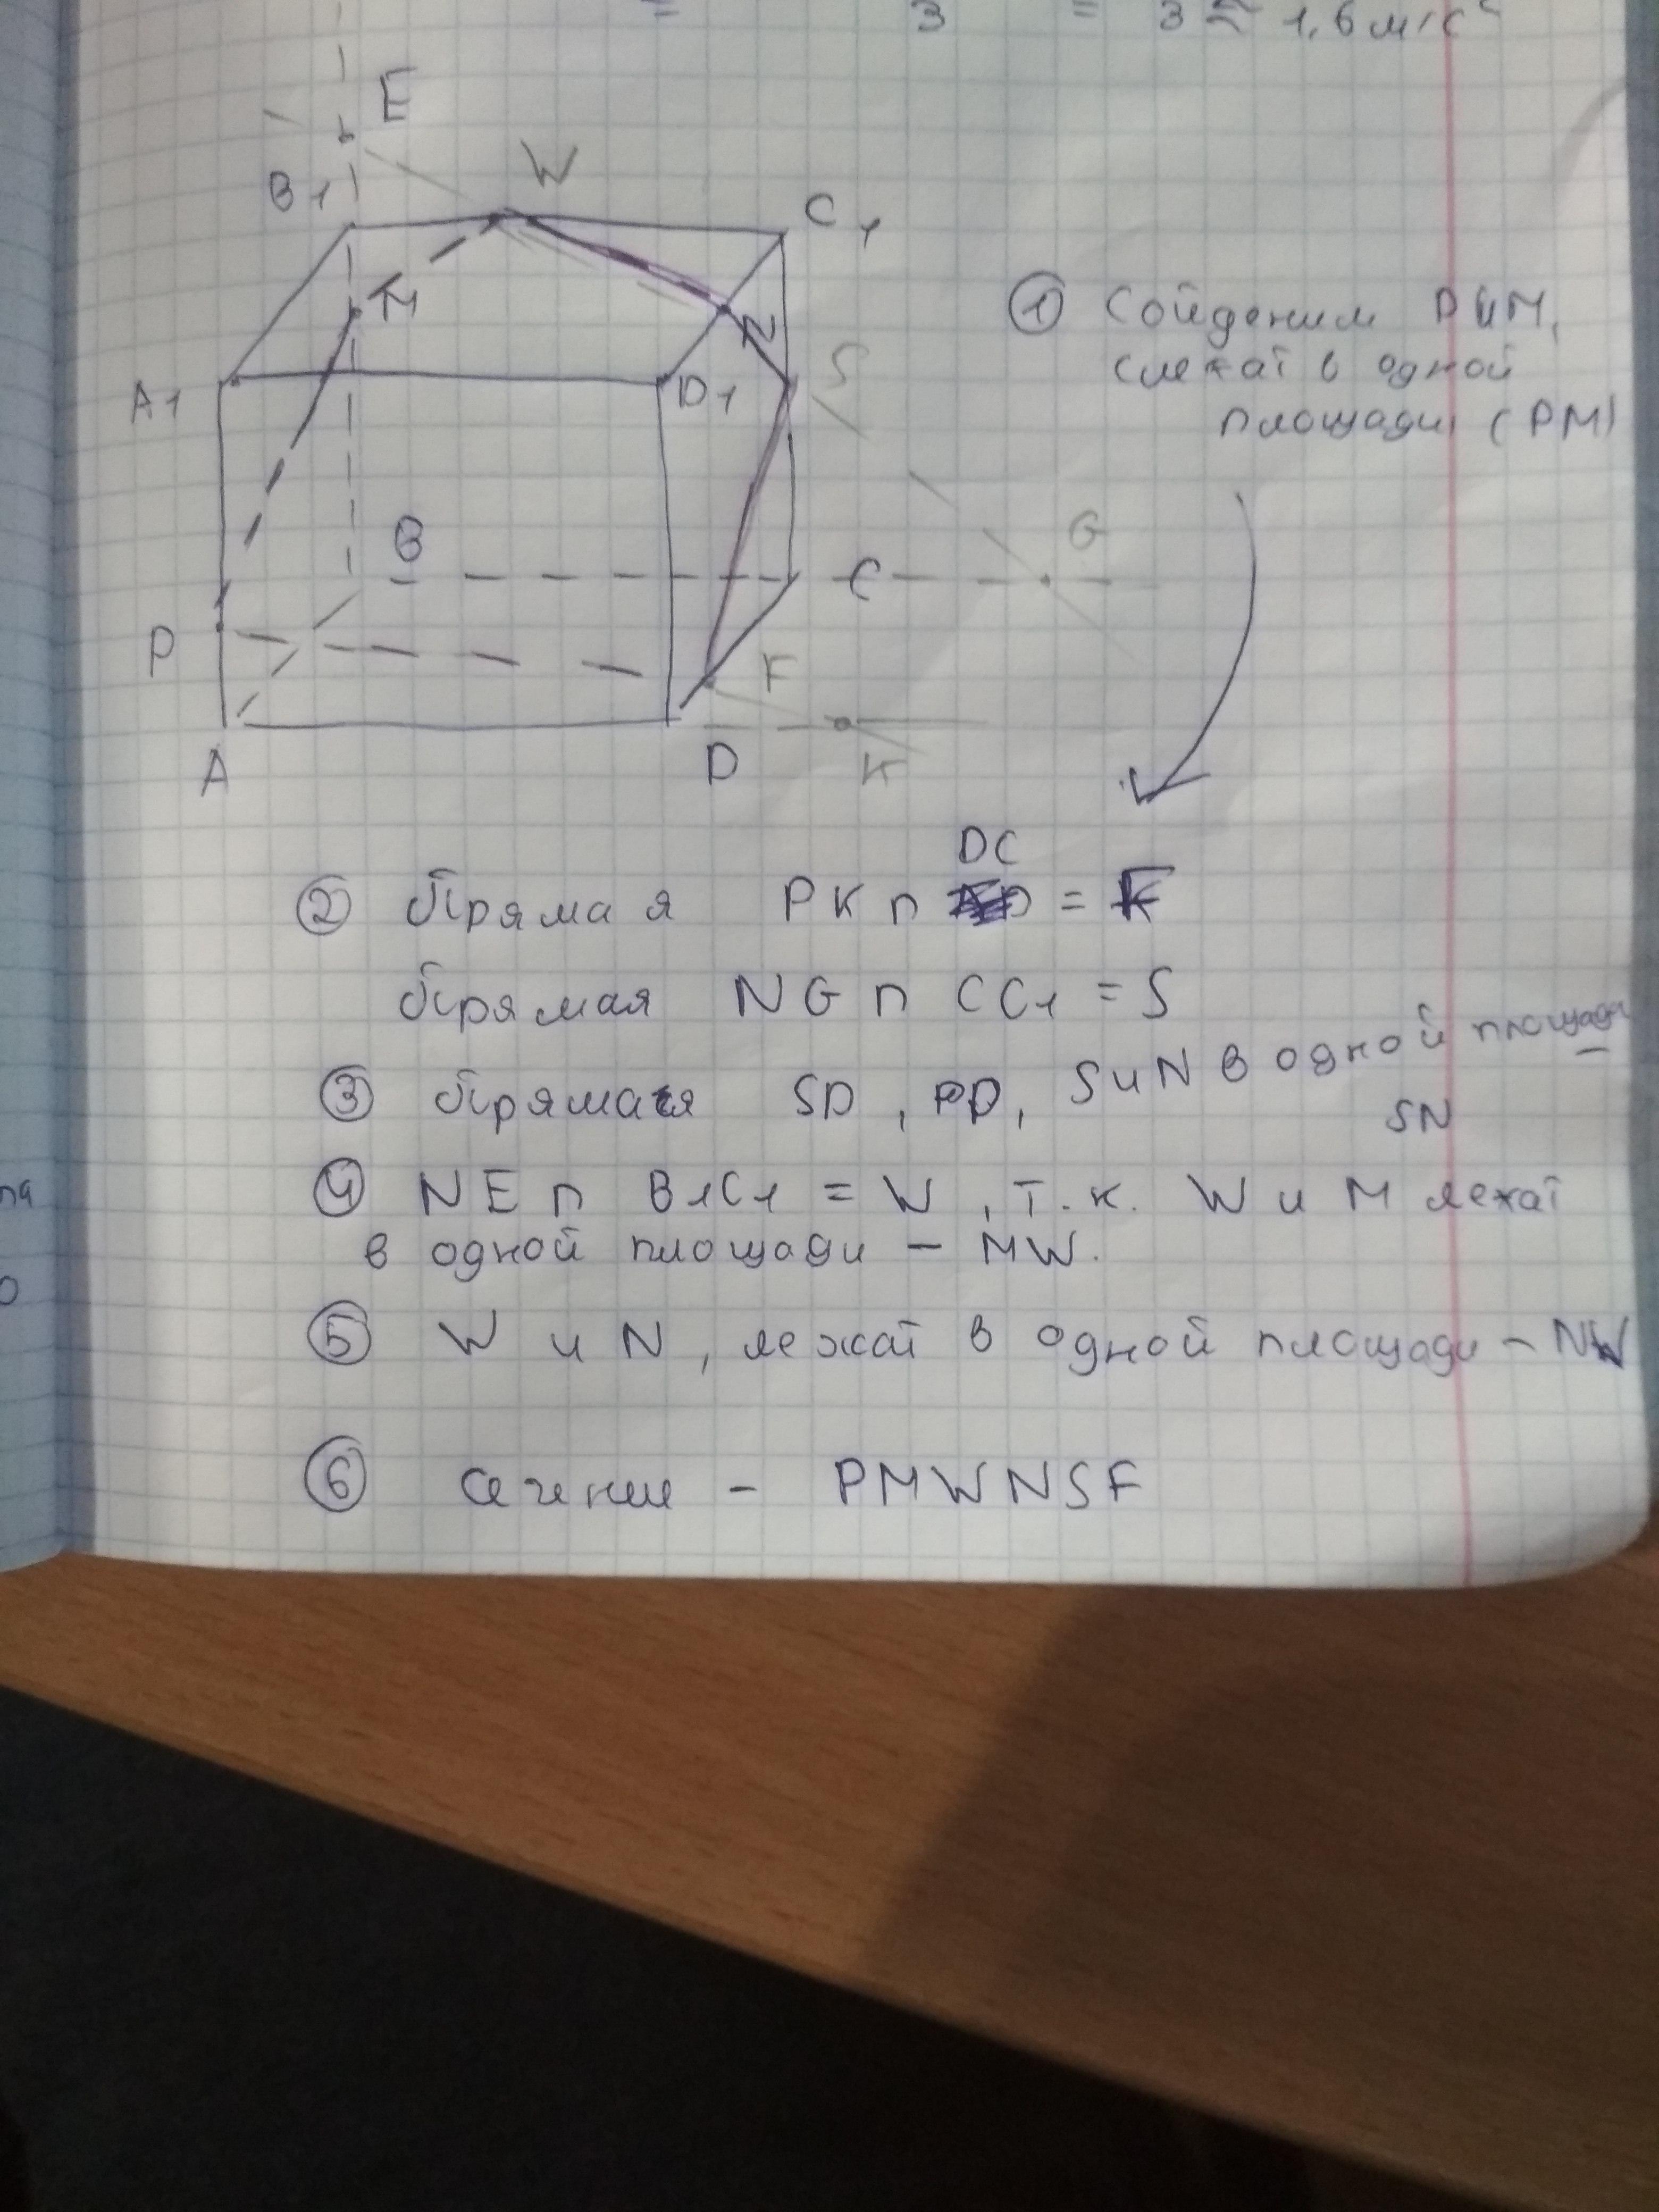 = 3 = 3 ≈ 1,6 м/с²
E
W
B1
C1
M
N
S
A1
D1
B
C
G
P
F
A
D
K
① Сойденим P и M,
слежат в одной
площади (PM)
DC
② Прямая PK ∩ = F
Прямая NG ∩ CC1 = S
③ Прямая SD, PD, S и N в одной площади –
SN
④ NE ∩ B1C1 = W, т.к. W и M лежат
в одной площади – MW.
⑤ W и N, лежат в одной площади – NW
⑥ сечение – PMWNSF